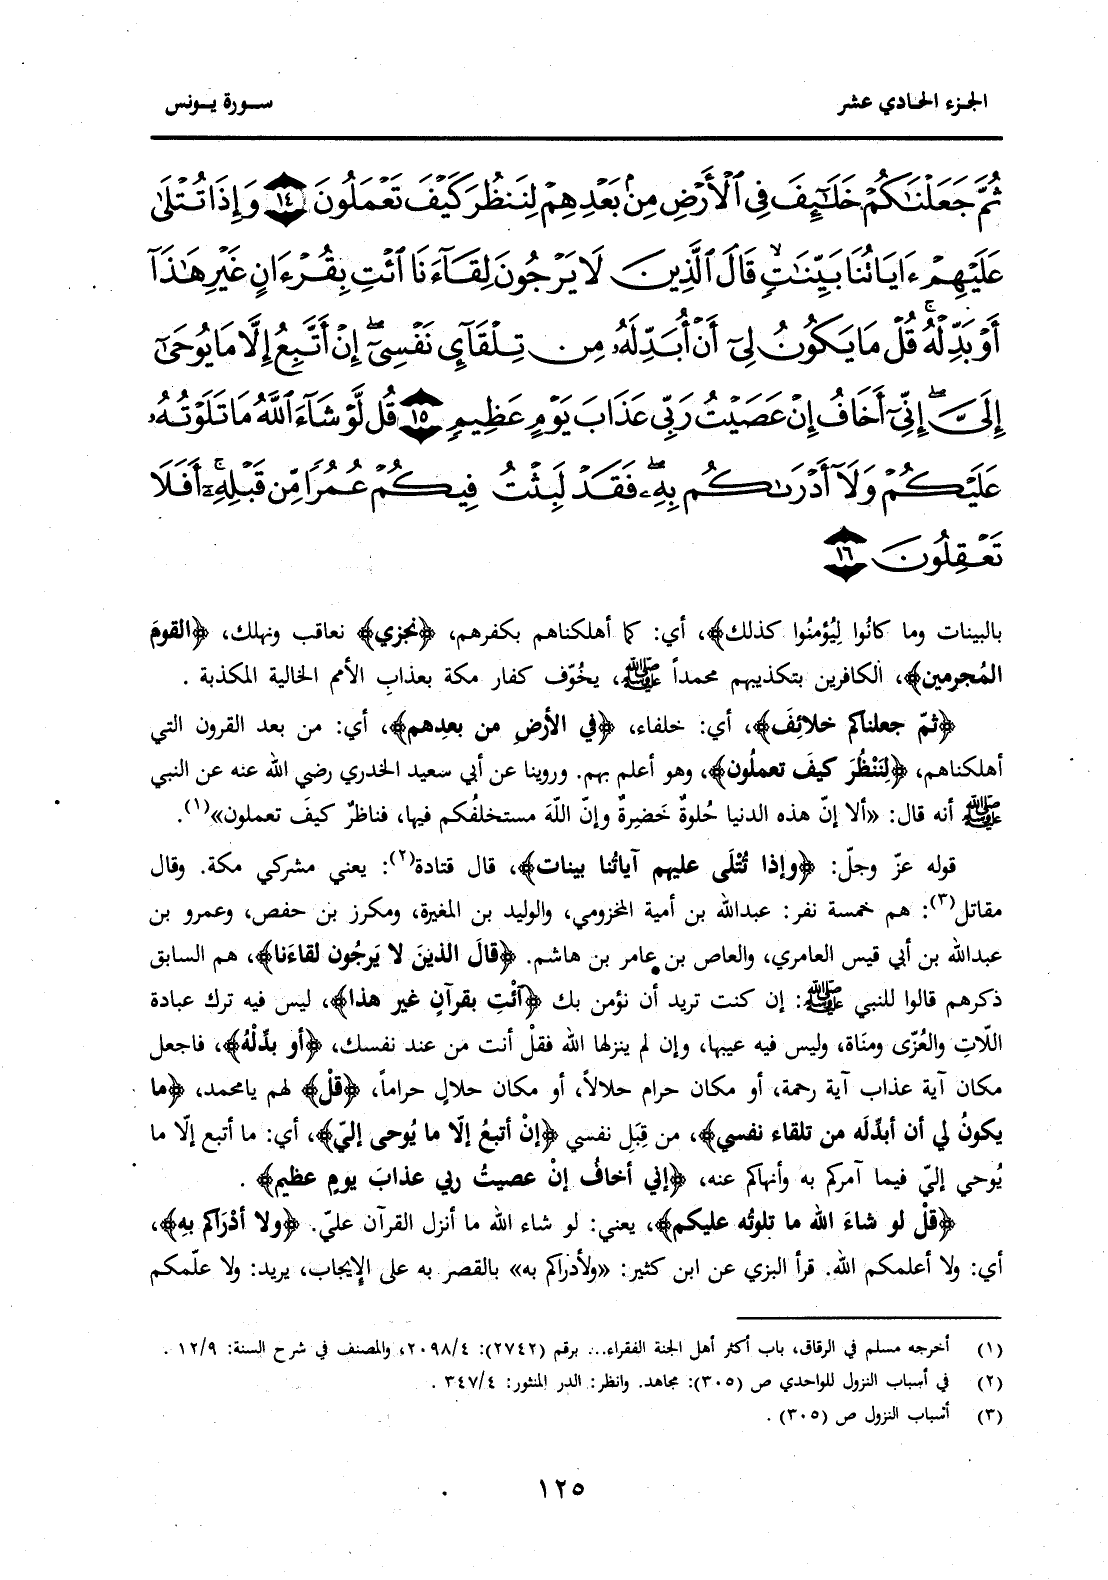 الجزء الحادي عشر
سورة يونس
ثُمَّ جَعَلْنَاكُمْ خَلَائِفَ فِي الْأَرْضِ مِنْ بَعْدِهِمْ لِنَنظُرَ كَيْفَ تَعْمَلُونَ ١٤ وَإِذَا تُتْلَىٰ
عَلَيْهِمْ ءَايَاتُنَا بَيِّنَاتٍ قَالَ الَّذِينَ لَا يَرْجُونَ لِقَاءَنَا ائْتِ بِقُرْءَانٍ غَيْرِ هَٰذَا
أَوْ بَدِّلْهُ قُلْ مَا يَكُونُ لِي أَنْ أُبَدِّلَهُ مِن تِلْقَآئِ نَفْسِي إِنْ أَتَّبِعُ إِلَّا مَا يُوحَىٰ
إِلَيَّ إِنِّي أَخَافُ إِنْ عَصَيْتُ رَبِّي عَذَابَ يَوْمٍ عَظِيمٍ ١٥ قُل لَّوْ شَاءَ اللَّهُ مَا تَلَوْتُهُ
عَلَيْكُمْ وَلَا أَدْرَاكُم بِهِ فَقَدْ لَبِثْتُ فِيكُمْ عُمُرًا مِّن قَبْلِهِ أَفَلَا
تَعْقِلُونَ ١٦
بالبينات وما كانُوا لِيُؤمنُوا كذلك﴾، أي: كما أهلكناهم بكفرهم، ﴿نجزي﴾ نعاقب ونهلك، ﴿القومَ
المُجرمين﴾، الكافرين بتكذيبهم محمداً ﷺ، يخُوّف كفار مكة بعذابِ الأمم الخالية المكذبة .
﴿ثمّ جعلناكم خلائِفَ﴾، أي: خلفاء، ﴿في الأرضِ من بعدِهم﴾، أي: من بعد القرون التي
أهلكناهم، ﴿لِنَنْظُرَ كيفَ تعملُون﴾، وهو أعلم بهم. وروينا عن أبي سعيد الخدري رضي الله عنه عن النبي
ﷺ أنه قال: «ألا إنّ هذه الدنيا حُلوةٌ خَضِرةٌ وإنّ اللّهَ مستخلفُكم فيها، فناظرٌ كيفَ تعملون»(١).
قوله عزّ وجلّ: ﴿وإذا تُتْلَى عليهم آياتُنا بينات﴾، قال قتادة(٢): يعني مشركي مكة. وقال
مقاتل(٣): هم خمسة نفر: عبدالله بن أمية المخزومي، والوليد بن المغيرة، ومكرز بن حفص، وعمرو بن
عبدالله بن أبي قيس العامري، والعاص بن عامر بن هاشم. ﴿قالَ الذينَ لا يَرجُون لقاءَنا﴾، هم السابق
ذكرهم قالوا للنبي ﷺ: إن كنت تريد أن نؤمن بك ﴿آئْتِ بقرآنٍ غير هذا﴾، ليس فيه ترك عبادة
اللّاتِ والعُزّى ومنَاة، وليس فيه عيبها، وإن لم ينزلها الله فقلْ أنت من عند نفسك، ﴿أو بدِّلْهُ﴾، فاجعل
مكان آية عذاب آية رحمة، أو مكان حرام حلالاً، أو مكان حلالٍ حراماً، ﴿قلْ﴾ لهم يامحمد، ﴿ما
يكونُ لي أن أبدِّلَه من تلقاء نفسي﴾، من قِبَلِ نفسي ﴿إنْ أتبعُ إلّا ما يُوحى إليّ﴾، أي: ما أتبع إلّا ما
يُوحي إليّ فيما آمركم به وأنهاكم عنه، ﴿إني أخافُ إنْ عصيتُ ربي عذابَ يومٍ عظيم﴾ .
﴿قلْ لو شاءَ الله ما تلوتُه عليكم﴾، يعني: لو شاء الله ما أنزل القرآن عليّ. ﴿ولا أدْرَاكم بهِ﴾،
أي: ولا أعلمكم الله. قرأ البزي عن ابن كثير: «ولأدراكم به» بالقصر به على الإيجاب، يريد: ولا علّمكم
(١) أخرجه مسلم في الرقاق، باب أكثر أهل الجنة الفقراء... برقم (٢٧٤٢): ٢٠٩٨/٤، والمصنف في شرح السنة: ١٢/٩ .
(٢) في أسباب النزول للواحدي ص (٣٠٥): مجاهد. وانظر: الدر المنثور: ٣٤٧/٤ .
(٣) أسباب النزول ص (٣٠٥) .
١٢٥